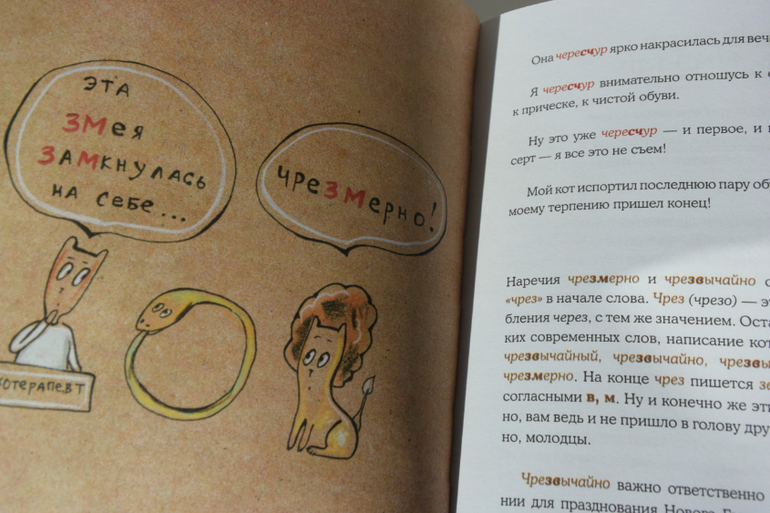 ЭТА
ЗМЕЯ
ЗАМКНУЛАСЬ
НА СЕБЕ...
ЧРЕЗМЕРНО!
Она чересчур ярко накрасилась для
Я чересчур внимательно отношусь к
к прическе, к чистой обуви.
Ну это уже чересчур — и первое, и
серт — я все это не съем!
Мой кот испортил последнюю пару
моему терпению пришел конец!
Наречия чрезмерно и чрезвычайно
«чрез» в начале слова. Чрез (чрезо) —
бления через, с тем же значением.
ких современных слов, написание
чрезвычайный, чрезвычайно,
чрезмерно. На конце чрез пишется
согласными в, м. Ну и конечно же
но, вам ведь и не пришло в голову
но, молодцы.
Чрезвычайно важно ответственно
нии для празднования Нового